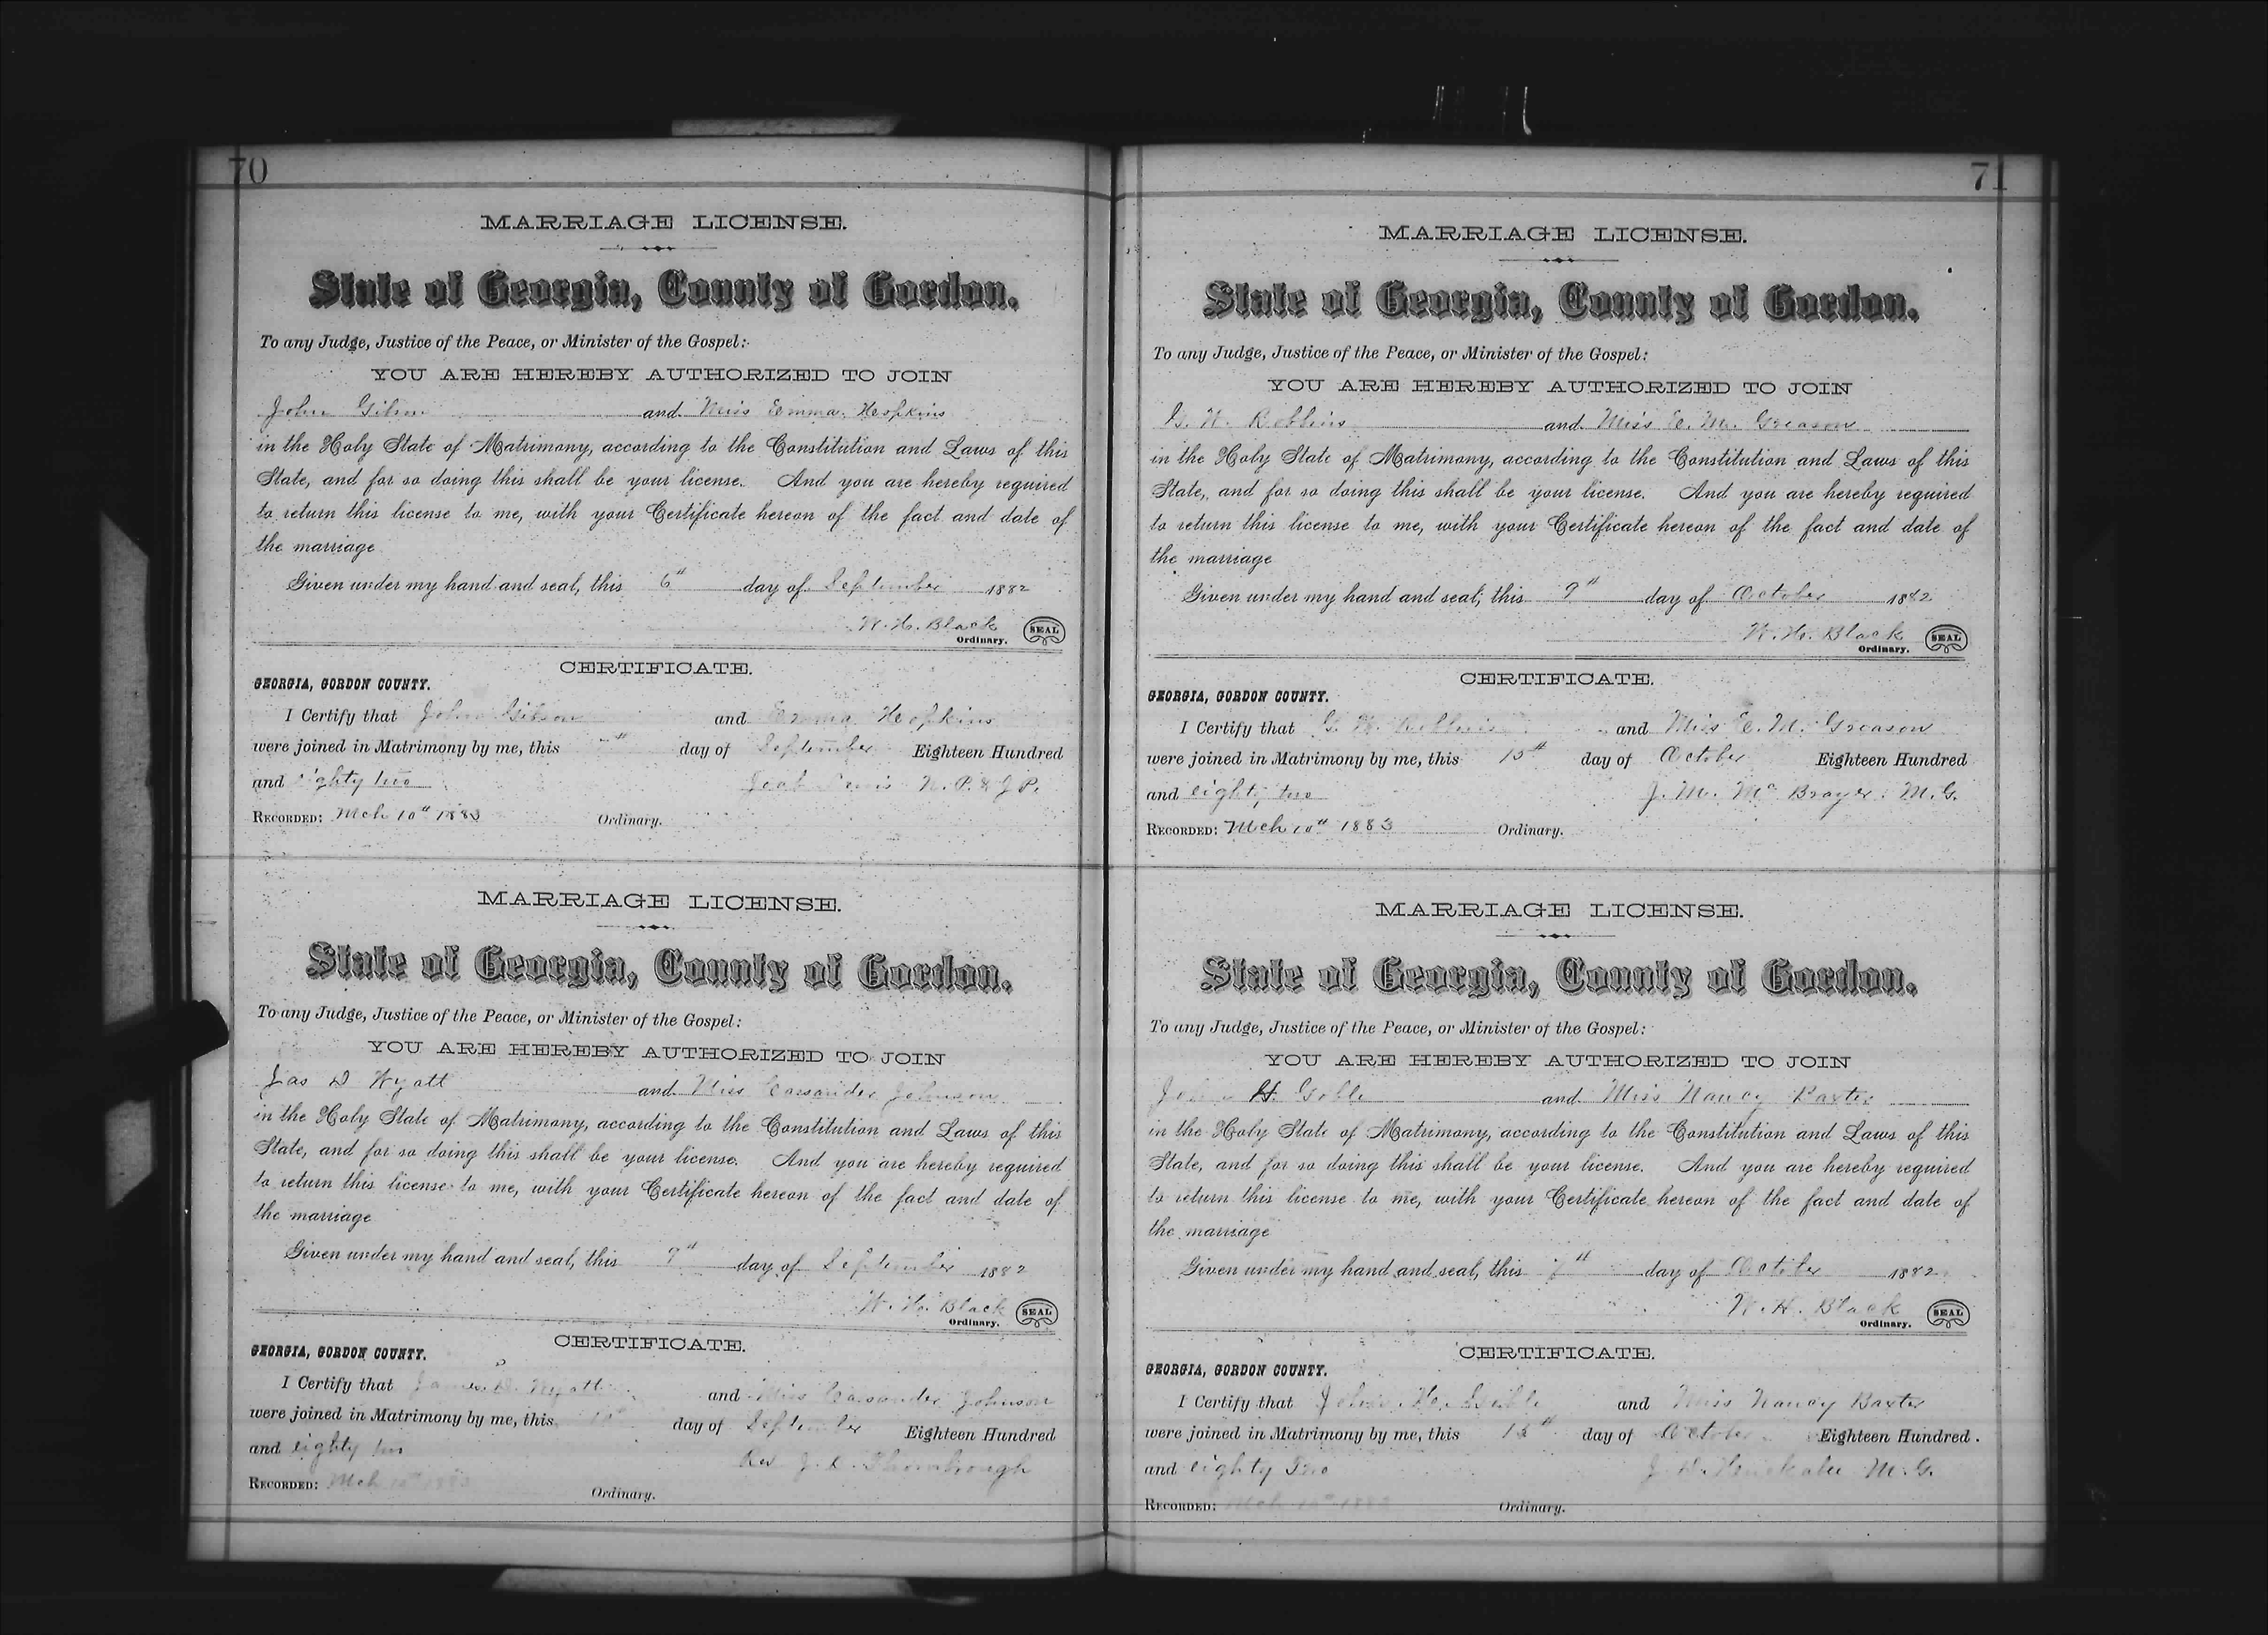 70
MARRIAGE LICENSE.
State of Georgia, County of Gordon.
To any Judge, Justice of the Peace, or Minister of the Gospel:
YOU ARE HEREBY AUTHORIZED TO JOIN
John and Miss Emma Hopkins
in the Holy State of Matrimony, according to the Constitution and Laws of this
State, and for so doing this shall be your license. And you are hereby required
to return this license to me, with your Certificate hereon of the fact and date of
the marriage
Given under my hand and seal, this 6th day of September 1882
W. H. Black
Ordinary. SEAL
CERTIFICATE.
GEORGIA, GORDON COUNTY.
I Certify that John Gibson and Emma Hopkins
were joined in Matrimony by me, this day of September Eighteen Hundred
and eighty two N. P. & J P.
RECORDED: Mch 10th 1883 Ordinary.
MARRIAGE LICENSE.
State of Georgia, County of Gordon.
To any Judge, Justice of the Peace, or Minister of the Gospel:
YOU ARE HEREBY AUTHORIZED TO JOIN
Jas D Wyatt and Miss Cassander Johnson
in the Holy State of Matrimony, according to the Constitution and Laws of this
State, and for so doing this shall be your license. And you are hereby required
to return this license to me, with your Certificate hereon of the fact and date of
the marriage
Given under my hand and seal, this 9th day of September 1882
W. H. Black
Ordinary. SEAL
CERTIFICATE.
GEORGIA, GORDON COUNTY.
I Certify that James D. Wyatt and Miss Casander Johnson
were joined in Matrimony by me, this day of September Eighteen Hundred
and eighty two Rev J. C. Thornbrough
RECORDED: Mch 10th 1883 Ordinary.
71
MARRIAGE LICENSE.
State of Georgia, County of Gordon.
To any Judge, Justice of the Peace, or Minister of the Gospel:
YOU ARE HEREBY AUTHORIZED TO JOIN
G. W. Robbins and Miss E. M. Greason
in the Holy State of Matrimony, according to the Constitution and Laws of this
State, and for so doing this shall be your license. And you are hereby required
to return this license to me, with your Certificate hereon of the fact and date of
the marriage
Given under my hand and seal, this 9th day of October 1882
W. H. Black
Ordinary. SEAL
CERTIFICATE.
GEORGIA, GORDON COUNTY.
I Certify that G. W. Robbins and Miss E. M. Greason
were joined in Matrimony by me, this 15th day of October Eighteen Hundred
and eighty two J. M. McBrayer. M. G.
RECORDED: Mch 10th 1883 Ordinary.
MARRIAGE LICENSE.
State of Georgia, County of Gordon.
To any Judge, Justice of the Peace, or Minister of the Gospel:
YOU ARE HEREBY AUTHORIZED TO JOIN
John H Goble and Miss Nancy Baxter
in the Holy State of Matrimony, according to the Constitution and Laws of this
State, and for so doing this shall be your license. And you are hereby required
to return this license to me, with your Certificate hereon of the fact and date of
the marriage
Given under my hand and seal, this day of October 1882
W. H. Black
Ordinary. SEAL
CERTIFICATE.
GEORGIA, GORDON COUNTY.
I Certify that John H. and Miss Nancy Baxter
were joined in Matrimony by me, this day of October Eighteen Hundred
and eighty Two M. G.
RECORDED: Mch 10th 1883 Ordinary.